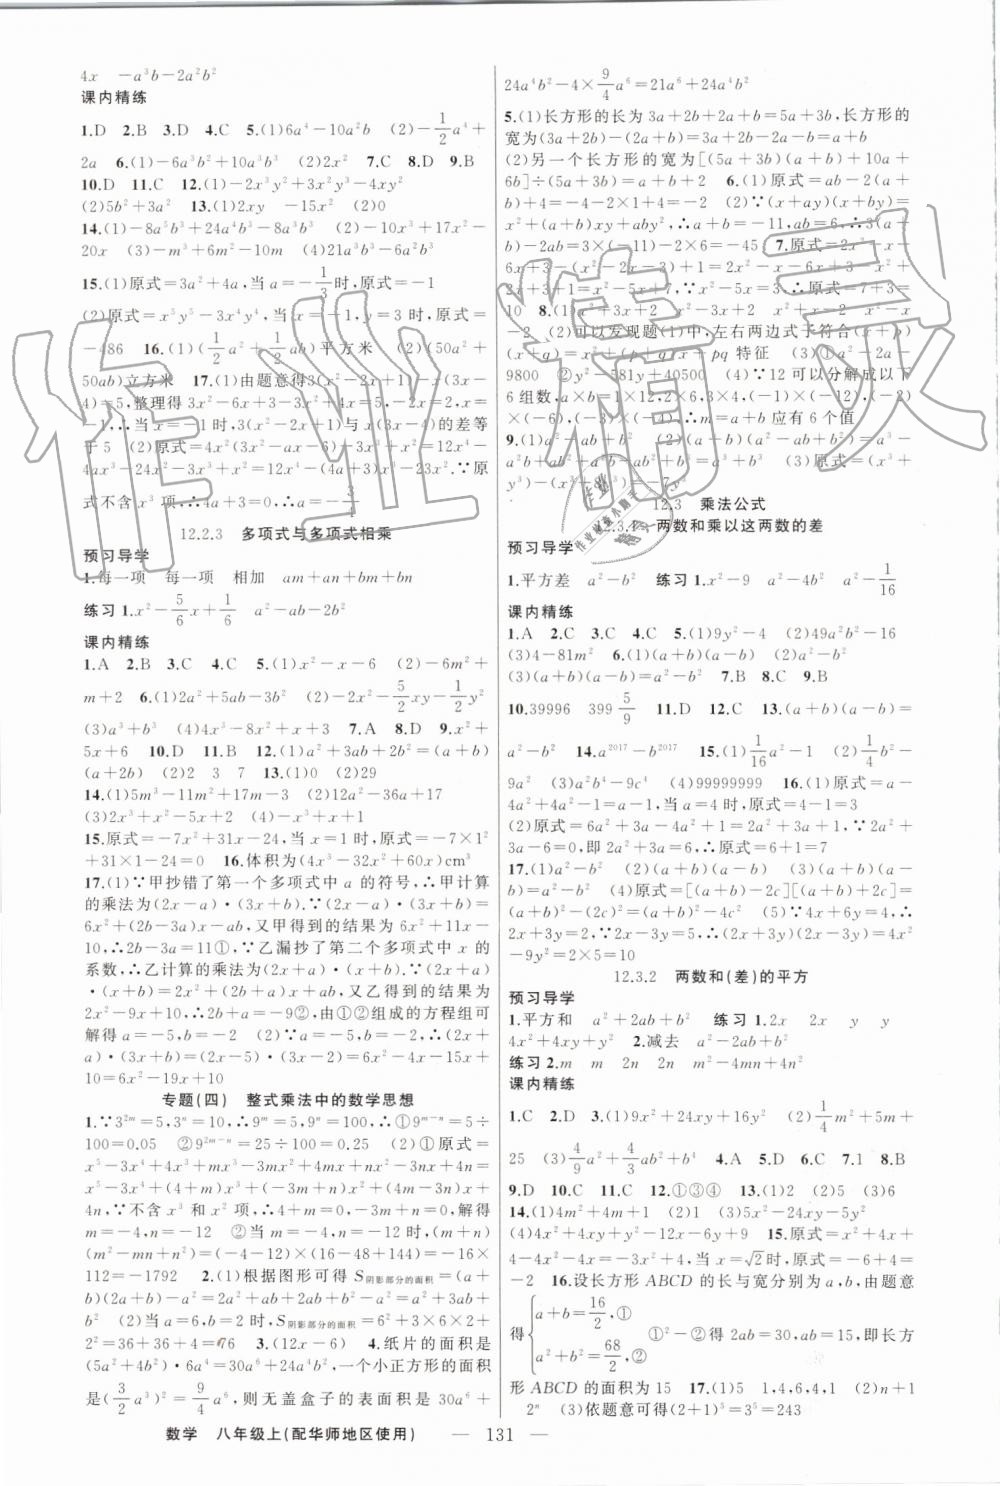 4x　-a³b-2a²b²
课内精练
1.D 2.B 3.D 4.C 5.(1)6a⁴-10a²b (2)-1/2a⁴+
2a 6.(1)-6a³b²+10a³b³ (2)2x² 7.C 8.D 9.B
10.D 11.C 12.(1)-2x³y²+3x²y³-4xy²
(2)5b²+3a² 13.(1)2xy -15x² (2)0
14.(1)-8a⁵b³+24a⁴b³-8a³b³ (2)-10x³+17x²-
20x (3)-m³+6m²-10m (4)21a³b³-6a²b³
15.(1)原式=3a²+4a,当a=-1/3时,原式=-1
(2)原式=x⁵y⁵-3x⁴y⁴,当x=-1,y=3时,原式=
-486 16.(1)(1/2a²+1/2ab)平方米 (2)(50a²+
50ab)立方米 17.(1)由题意得3(x²-2x+1)-x(3x-
4)=5,整理得3x²-6x+3-3x²+4x=5,-2x=2,x=
-1.∴当x=-1时,3(x²-2x+1)与x(3x-4)的差等
于5 (2)原式=
4ax³-24x²-3x³+x²=12x⁴-(4a+3)x³-23x².∵原
式不含x³项,∴4a+3=0,∴a=-3/4
12.2.3 多项式与多项式相乘
预习导学
1.每一项 每一项 相加 am+an+bm+bn
练习1.x²-5/6x+1/6 a²-ab-2b²
课内精练
1.A 2.B 3.C 4.C 5.(1)x²-x-6 (2)-6m²+
m+2 6.(1)2a²+5ab-3b² (2)-2x²-5/2xy-1/2y²
(3)a³+b³ (4)4x³-8x²+x+3 7.A 8.D 9.x²+
5x+6 10.D 11.B 12.(1)a²+3ab+2b²=(a+b)
(a+2b) (2)2 3 7 13.(1)0 (2)29
14.(1)5m³-11m²+17m-3 (2)12a²-36a+17
(3)2x³+x²-5x+2 (4)-x³+x+1
15.原式=-7x²+31x-24,当x=1时,原式=-7×1²
+31×1-24=0 16.体积为(4x³-32x²+60x)cm³
17.(1)∵甲抄错了第一个多项式中a的符号,∴甲计算
的乘法为(2x-a)·(3x+b).∵(2x-a)·(3x+b)=
6x²+(2b-3a)x-ab,又甲得到的结果为6x²+11x-
10,∴2b-3a=11①,∵乙漏抄了第二个多项式中x的
系数,∴乙计算的乘法为(2x+a)·(x+b).∵(2x+a)
·(x+b)=2x²+(a+2b)x+ab,又乙得到的结果为
2x²-9x+10,∴2b+a=-9②,由①②组成的方程组可
解得a=-5,b=-2 (2)∵a=-5,b=-2,∴(2x+
a)·(3x+b)=(2x-5)·(3x-2)=6x²-4x-15x+10=
6x²-19x+10
专题(四) 整式乘法中的数学思想
1.∵3²ᵐ=5,3ⁿ=10,∴9ᵐ=5,9ⁿ=100,∴①9ᵐ⁻ⁿ=5÷
100=0.05 ②9²ᵐ⁻ⁿ=25÷100=0.25 (2)①原式=
x⁵-3x⁴+4x³+mx³-3mx²+4mx+nx²-3nx+4n=
x⁵-3x⁴+(4+m)x³+(-3m+n)x²+(4m-3n)x+
4n,∵不含x³和x²项,∴4+m=0,-3m+n=0,解得
m=-4,n=-12 ②当m=-4,n=-12时,(m+n)
(m²-mn+n²)=(-4-12)×(16-48+144)=-16×
112=-1792 2.(1)根据图形可得S阴影部分的面积=(a+
b)(2a+b)-2ab=2a²+ab+2ab+b²-2ab=2a²+ab+
b² (2)当a=6,b=2时,S阴影部分的面积=6²×2+6×2+
2²=36+36+4=76 3.(12x-6) 4.纸片的面积是
(5a²+4b²)·6a⁴=30a⁶+24a⁴b²,一个小正方形的面积
是(3/2a³)²=9/4a⁶,则无盖盒子的表面积是30a⁶+
24a⁴b²-4×9/4a⁶=21a⁶+24a⁴b²
5.(1)长方形的长为3a+2b+2a+b=5a+3b,长方形的
宽为(3a+2b)-(2a+b)=3a+2b-2a-b=a+b
(2)另一个长方形的宽为[(5a+3b)(a+b)+10a+
6b]÷(5a+3b)=a+b+2 6.(1)原式=ab-2(a+
b)+4=-4-2×1+4=-2 (2)∵(x+ay)(x+by)=
x²+(a+b)xy+aby²,∴a+b=-11,ab=6,∴3(a+
b)-2ab=3×(-11)-2×6=-45 7.原式=2x²-x-
6x+3-(x²-2x-3)+1=2x²-x-6x+3-x²+
x²-5x+7,∵x²-5x=3,∴原式=7+3=
10 8.(1)
-2 (2)可以发现题(1)中,左右两边式子符合(x+p)
(x+q)=x²+(p+q)x+pq特征 (3)①a²-2a-
9800 ②y²-581y+40500 (4)∵12可以分解成以下
6组数,a×b=1×12,2×6,3×4,(-1)×(-12),(-2)
×(-6),(-3)×(-4),∴m=a+b应有6个值
9.(1)a²-ab+b² (2)(a-b)(a²+ab+b²)=a³-
(3)原式=(x³+
12.3 乘法公式
12.3.1 两数和乘以这两数的差
预习导学
1.平方差 a²-b² 练习1.x²-9 a²-4b² a²-1/16
课内精练
1.A 2.C 3.C 4.C 5.(1)9y²-4 (2)49a²b²-16
(3)4-81m² 6.(1)(a+b)(a-b) (2)a²-b²
(3)(a+b)(a-b)=a²-b² 7.B 8.C 9.B
10.39996 399 5/9 11.D 12.C 13.(a+b)(a-b)=
a²-b² 14.a²⁰¹⁷-b²⁰¹⁷ 15.(1)1/16a²-1 (2)1/4b²-
9a² (3)a²b⁴-9c⁴ (4)99999999 16.(1)原式=a-
4a²+4a²-1=a-1,当a=4时,原式=4-1=3
(2)原式=6a²+3a-4a²+1=2a²+3a+1,∵2a²+
3a-6=0,即2a²+3a=6,∴原式=6+1=7
17.(1)a²-b² (2)(a+b)(a-b) (3)(a+b)(a-
b)=a²-b² (4)原式=[(a+b)-2c][(a+b)+2c]=
(a+b)²-(2c)²=(a+b)²-4c² (5)∵4x+6y=4,∴
2x+3y=2,∴(2x+3y)(2x-3y)-8x+
9y=2×5=10
12.3.2 两数和(差)的平方
预习导学
1.平方和 a²+2ab+b² 练习1.2x 2x y y
4x²+4xy+y² 2.减去 a²-2ab+b²
练习2.m m 2n 2n m²-4mn+4n²
课内精练
1.C 2.D 3.(1)9x²+24xy+16y² (2)1/4m²+5m+
25 (3)4/9a²+4/3ab²+b⁴ 4.A 5.D 6.C 7.1 8.B
9.D 10.C 11.C 12.①③④ 13.(1)2 (2)5 (3)6
14.(1)4m²+4m+1 (2)1 (3)-2xy-5y²
(4)4x²+4xz+z²-9y² 15.原式=4x²-4x+
4-4x²-4x-4=-6x²+4,当x=√2时,原式=-6+4=
-2 16.设长方形ABCD的长与宽分别为a,b,由题意
得{a+b=16/2,① a²+b²=68/2,② ①²-②得2ab=30,ab=15,即长方
形ABCD的面积为15 17.(1)5 1,4,6,4,1 (2)n+1
2ⁿ (3)依题意可得(1+2)⁵=3⁵=243
数学 八年级上(配华师地区使用) — 131 —
作业精灵